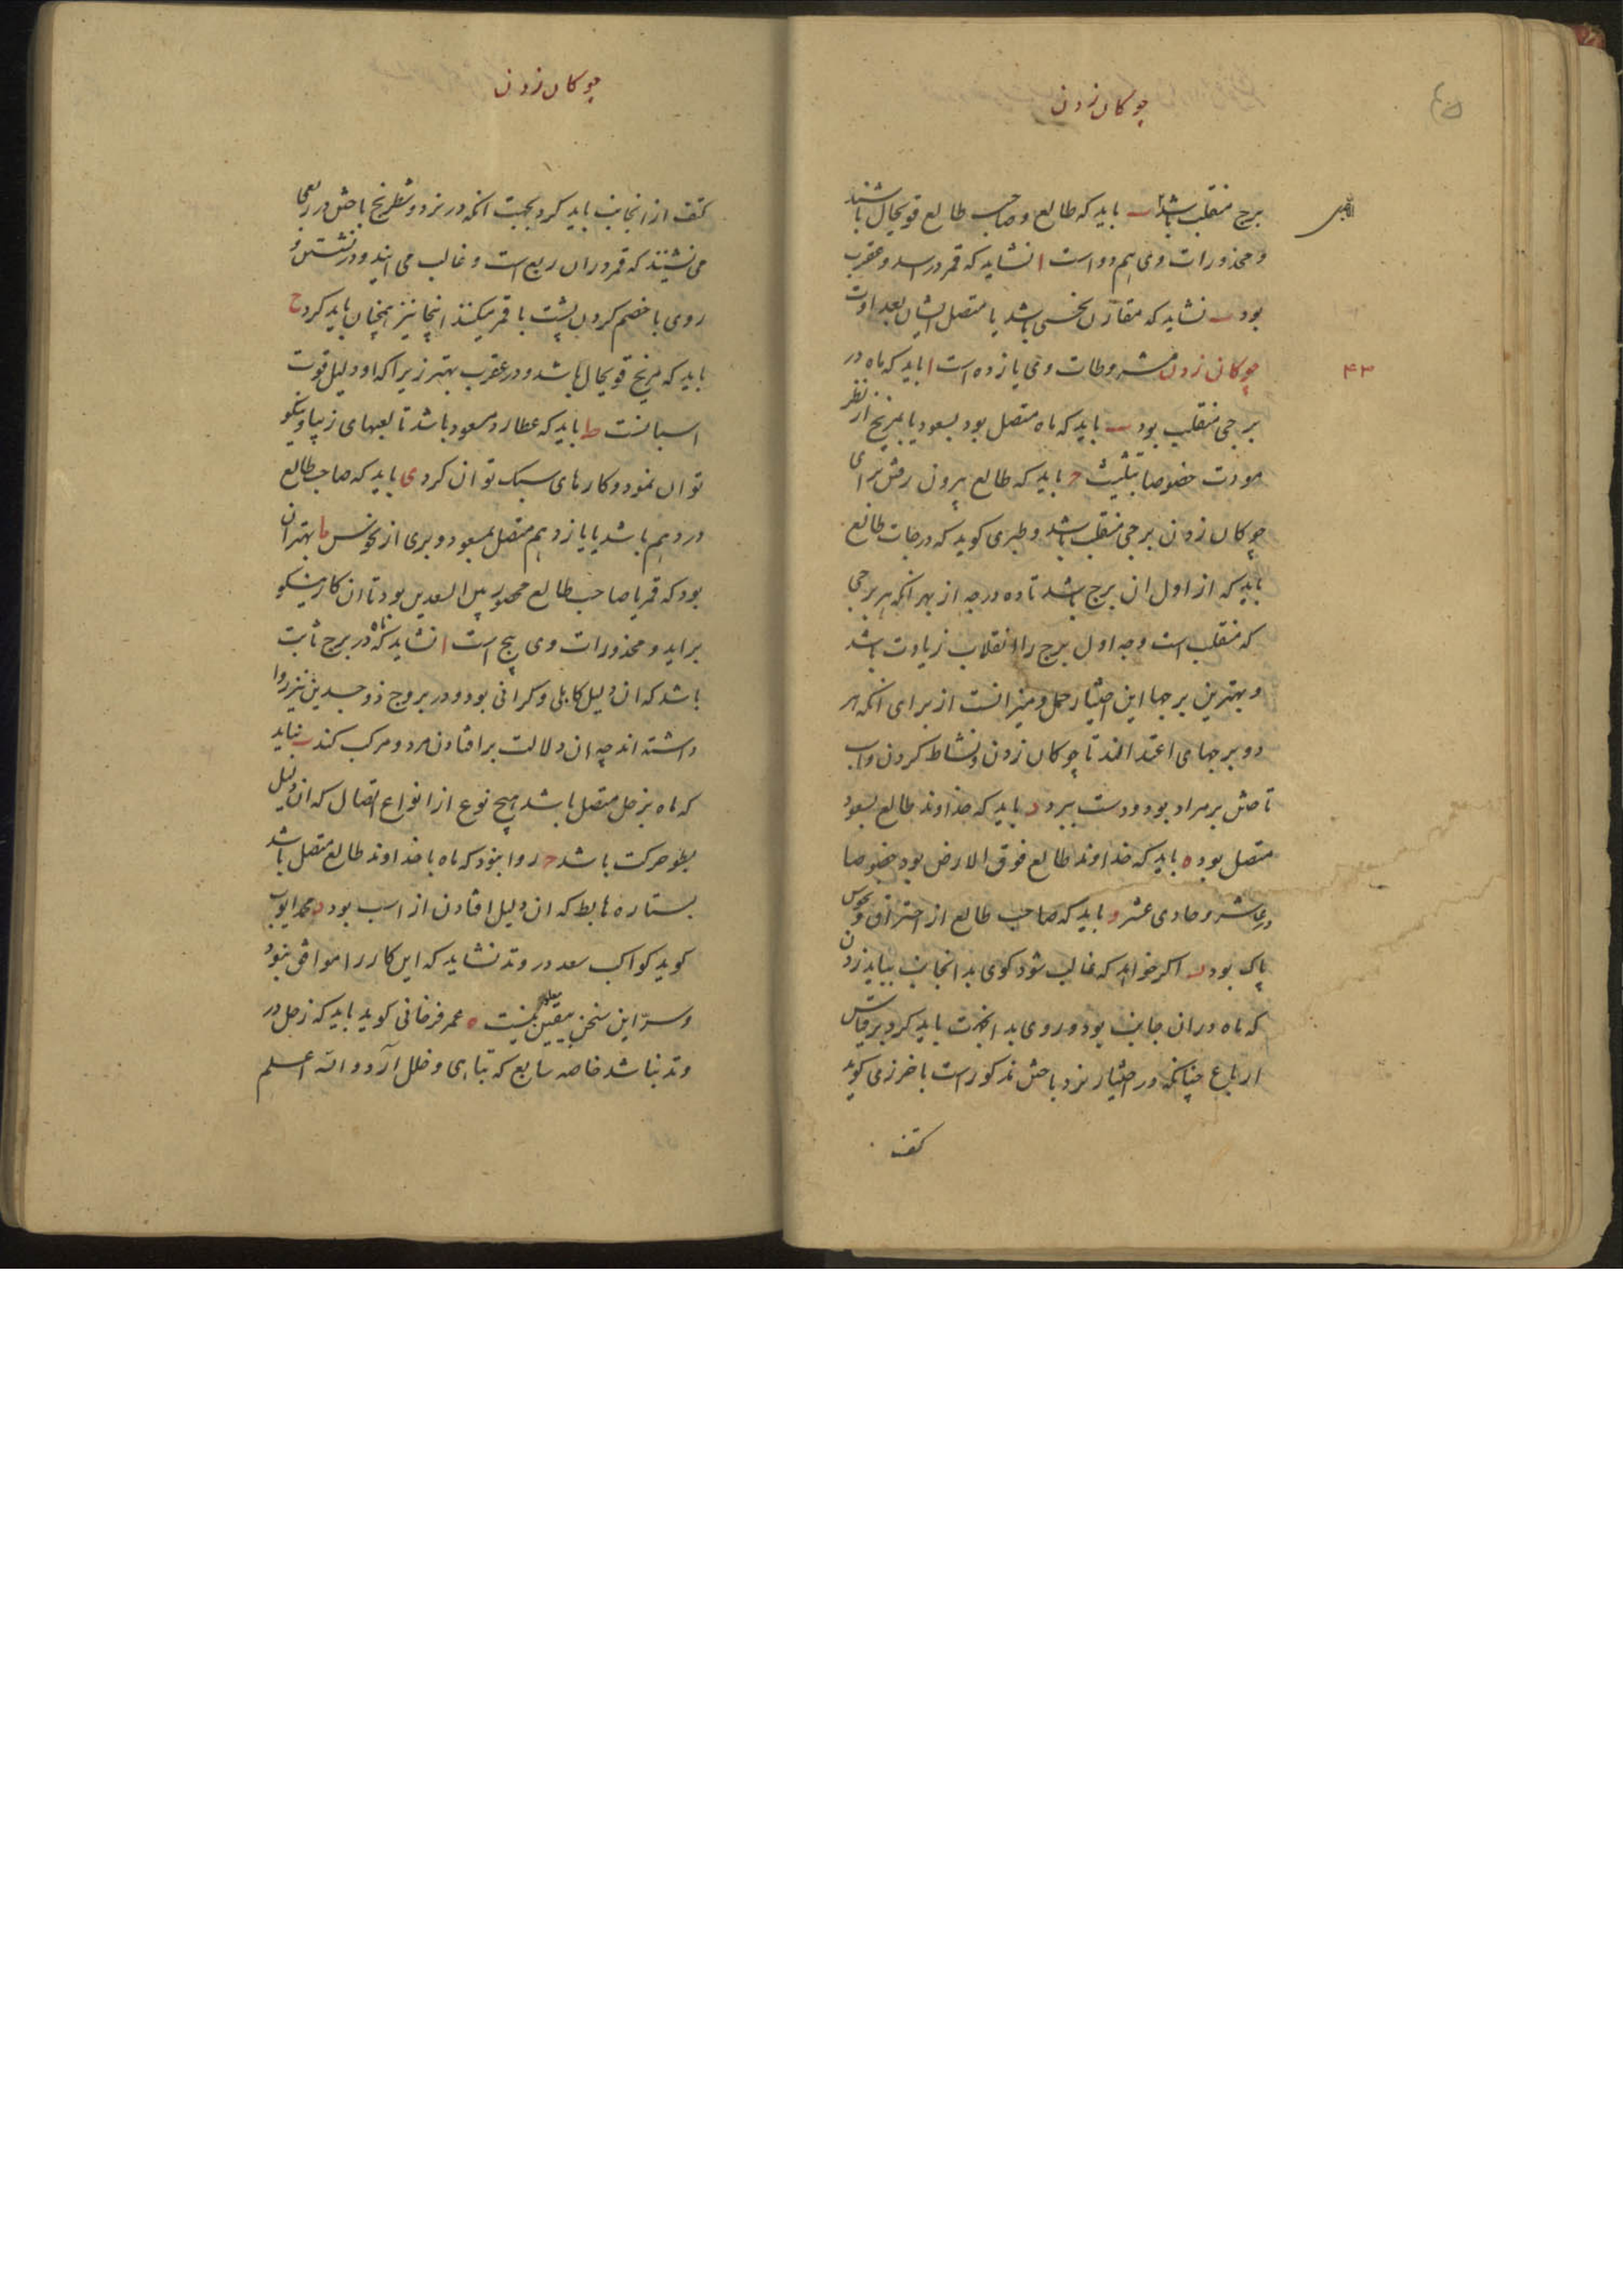 چوکان زدن
برج منقلب باشد ب باید که طالع و صاحب طالع قویحال باشند
و محذورات وی هم دو است ا نشاید که قمر در اسد و عقرب
بود ب نشاید که مقارن نحسی باشد یا متصل ایشان بعداوت
۴۳
چوکان زدن مشروطات وی یازده است ا باید که ماه در
برجی منقلب بود ب باید که ماه متصل بود بسعود یا بمریخ از نظر
مودت خصوصا تثلیث ج باید که طالع بیرون رفتن برای
چوکان زدن برجی منقلب باشد و طبری کوید که درجات طالع
باید که از اول ان برج باشد تا ده درجه از بهر انکه هر برجی
که منقلب است وجه اول برج را انقلاب زیادت باشد
و بهترین برجها این اختیار حمل و میزانست از برای انکه هر
دو برجهای اعتدالند تا چوکان زدن و نشاط کردن و اسب
تاختن بر مراد بود و دست ببرد د باید که خداوند طالع بسعود
متصل بود ه باید که خداوند طالع فوق الارض بود خصوصا
در عاشر و حادی عشر و باید که صاحب طالع از احتراق و نحوس
پاک بود ز اکر خواهد که غالب شود کوی بد انجانب بباید زدن
که ماه در ان جانب بود و روی بد انجهت باید کرد بر قیاس
ارباع چنانکه در اختیار نرد باختن مذکور است باخرزی کوید
کتف
چوکان زدن
کتف از انجانب باید کرد بجهت انکه در نرد و شطرنج باختن در ربعی
می نشینند که قمر در ان ربع است و غالب می ایند و در نشستن و
روی با خصم کردن پشت با قمر میکنند اینجا نیز همچنان باید کرد ح
باید که مریخ قویحال باشد و در عقرب بهتر زیرا که او دلیل قوت
اسبانست ط باید که عطارد مسعود باشد تا لعبهای زیبا و نیکو
توان نمود و کارهای سبک توان کرد ی باید که صاحب طالع
در دهم باشد یا یازدهم متصل بسعود و بری از نحوس یا بهتر ان
بود که قمر یا صاحب طالع محصور بین السعدین بود تا ان کار نیکو
براید و محذورات وی پنج است ا نشاید که ماه در برج ثابت
باشد که ان دلیل کاهلی و کرانی بود و در بروج ذو جسدین نیز روا
داشته اند چه ان دلالت بر افتادن مرد و مرکب کند ب نباید
که ماه بزحل متصل باشد هیچ نوع از انواع اتصال که ان دلیل
بطو حرکت باشد ج روا نبود که ماه با خداوند طالع متصل باشد
بستاره هابط که ان دلیل افتادن از اسب بود د محمد ایوب
کوید کواکب سعد در وتد نشاید که این کار را موافق نبود
و سر این سخن بیقین معلوم نیست ه عمر فرخانی کوید باید که زحل در
وتد نباشد خاصه سابع که تباهی و خلل آرد و الله اعلم